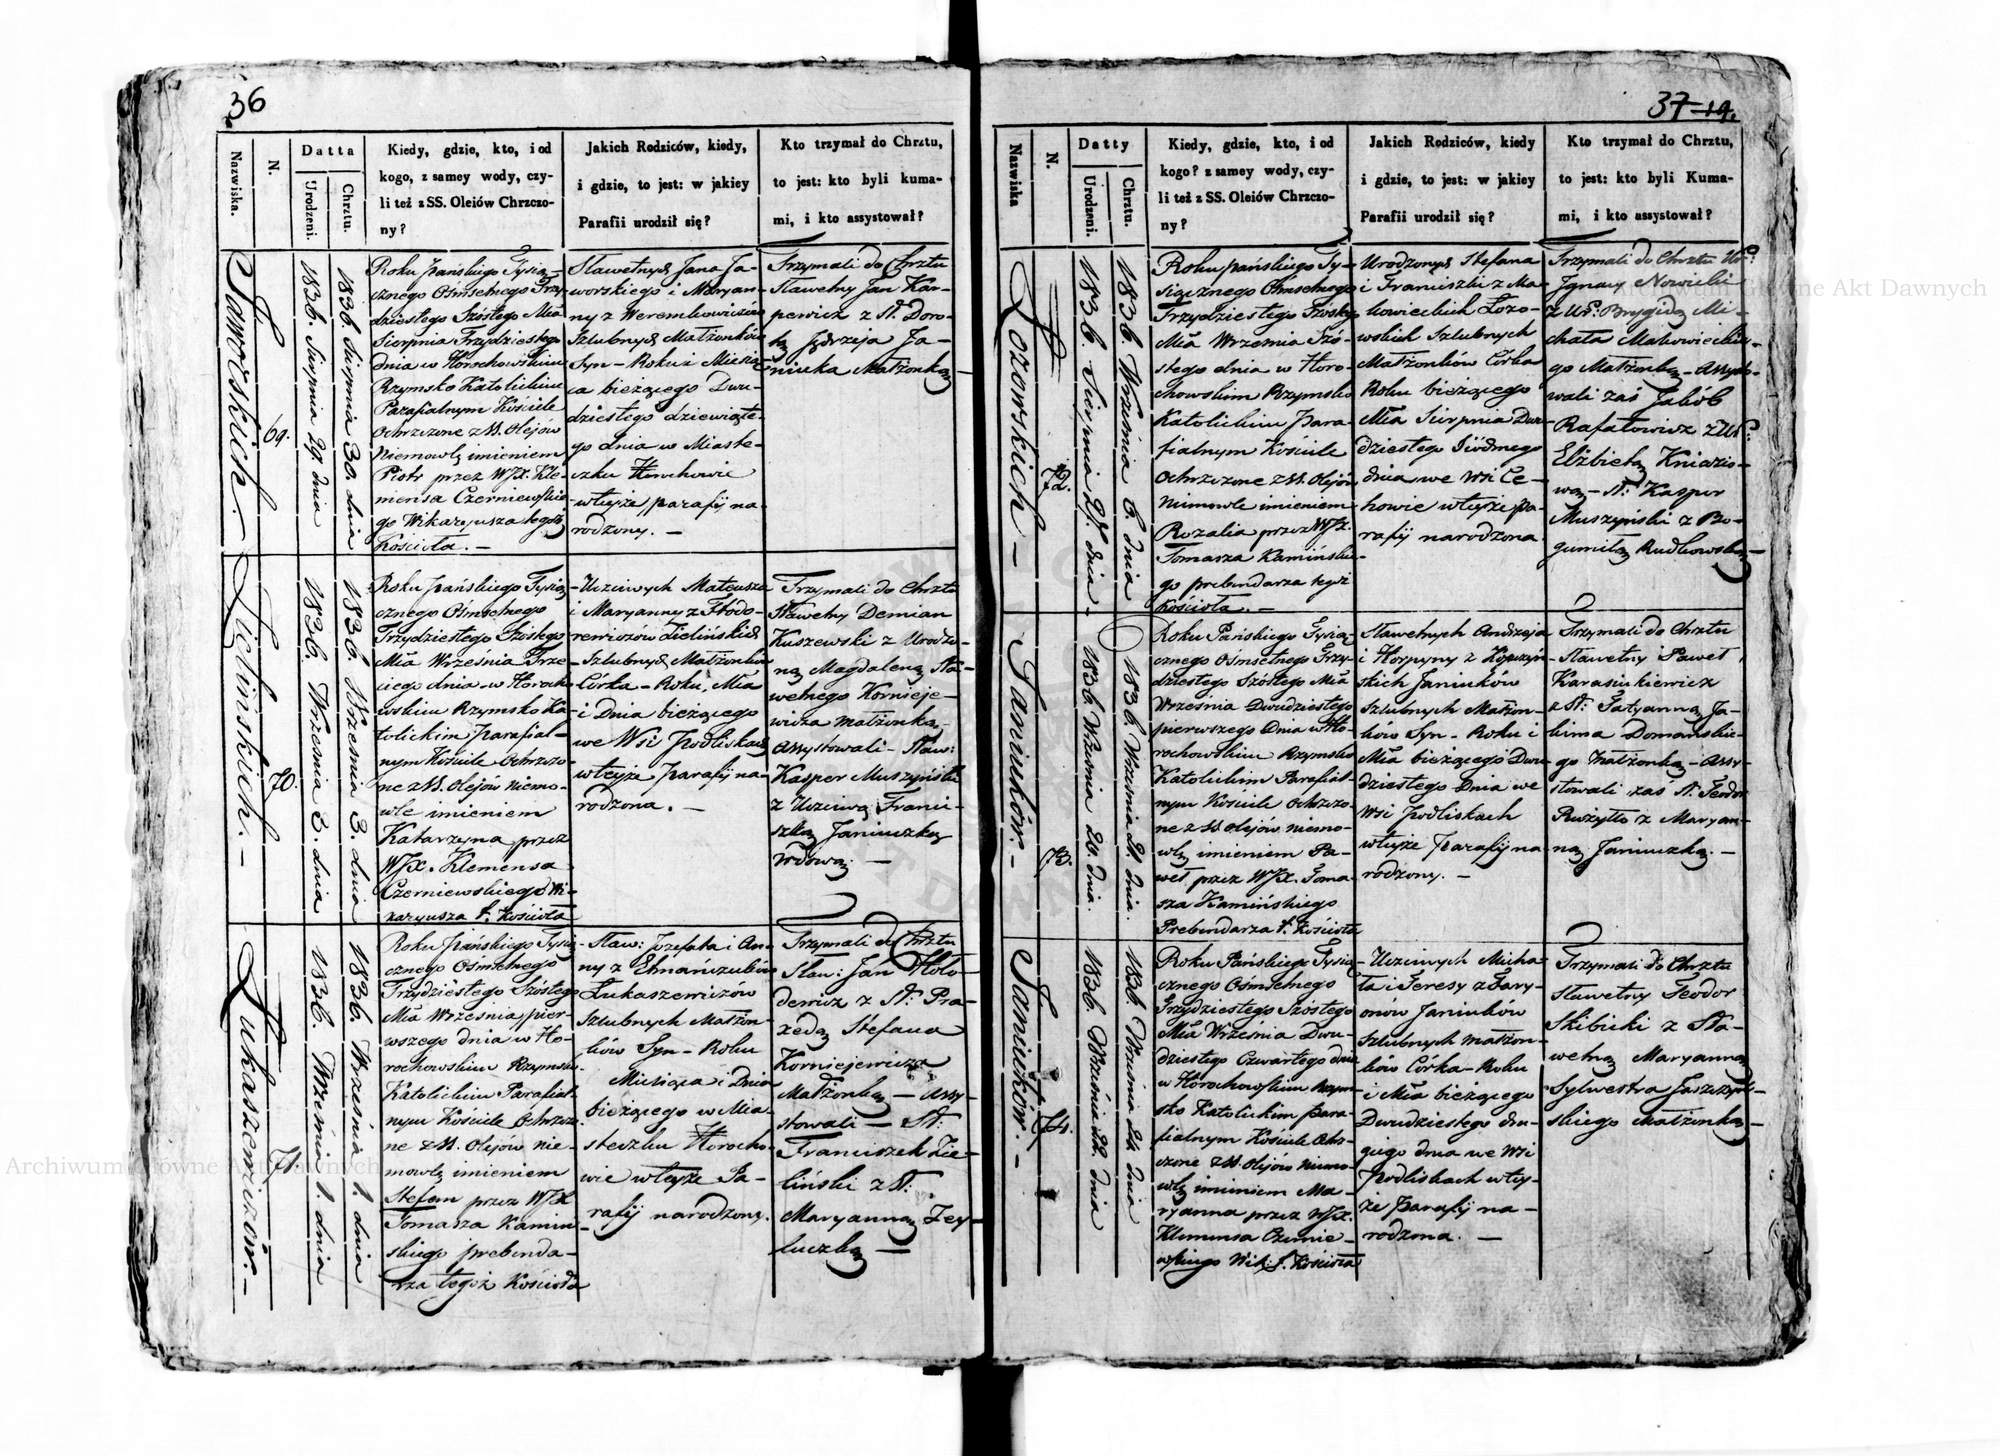 36
Nazwiska.
N.
Datta
Urodzeni.
Chrztu.
Kiedy, gdzie, kto, i od
kogo, z samey wody, czy-
li też z SS. Oleiów Chrzczo-
ny?
Jakich Rodziców, kiedy,
i gdzie, to jest: w jakiey
Parafii urodził się?
Kto trzymał do Chrztu,
to jest: kto byli kuma-
mi, i kto assystował?
Jaworskich.
69.
1836. Sierpnia 29. dnia
1836. Sierpnia 30. dnia
Roku Pańskiego Tysią-
cznego Ośmsetnego Trzy-
dziestego Szóstego Mia
Sierpnia Trzydziestego
dnia w Horochowskim
Rzymsko Katolickim
Parafialnym Kościele
Ochrzczone z SS. Olejów
Niemowlę imieniem
Piotr przez WJX. Kle-
mensa Czerniewskie-
go Wikaryusza tegoż
Kościoła. —
Sławetnych Jana Ja-
worskiego i Maryan-
ny z Werembowiczów
Szlubnych Małżonków
Syn - Roku i Miesią-
ca bieżącego Dwu-
dziestego dziewiąte-
go dnia w Miaste-
czku Horochowie
w teyże parafij na-
rodzony. —
Trzymali do Chrztu
Sławetny Jan Kar-
pewicz z Sł. Doro-
tą Jędrzeja Ja-
niuka Małżonką —
Zielinskich. —
70.
1836. Września 3. dnia
1836. Września 3. dnia
Roku Pańskiego Tysią-
cznego Ośmsetnego
Trzydziestego Szóstego
Mia Września Trze-
ciego dnia w Horoch-
owskim Rzymsko Ka-
tolickim parafial-
nym Kościele Ochrzczo-
ne z SS. Olejów niemo-
wle imieniem
Katarzyna przez
WJX. Klemensa
Czerniewskiego Wi-
karyusza t. Kościoła
Uczciwych Mateusza
i Maryanny z Fłódo-
rowiczów Zielińskich
Szlubnych Małżonków
Córka - Roku, Mia
i Dnia bieżącego
we Wsi Podliskach
w teyże parafij na-
rodzona. —
Trzymali do Chrztu
Sławetny Demian
Kuszewski z Urodzo-
ną Magdaleną Sła-
wetnego Kornieje-
wicza małżonką
Assystowali - Sław:
Kasper Muszyński
z Uczciwą Franci-
szką Janiuczką
wdową. —
Łukaszewiczów. —
71.
1836. Września 1. dnia
1836. Września 1. dnia
Roku Pańskiego Tysią-
cznego Ośmsetnego
Trzydziestego Szóstego
Mia Września pier-
wszego dnia w Ho-
rochowskim Rzymsko
Katolickim Parafial-
nym Kościele Ochrzczo-
ne z SS. Olejów nie-
mowlę imieniem
Stefan przez WJX
Tomasza Kamin-
skiego prebenda-
rza tegoż Kościoła
Sław: Jozefata i An-
ny z
Łukaszewiczów
Szlubnych Małżon-
ków Syn - Roku
Miesiąca i Dnia
bieżącego w Mia-
steczku Horocho-
wie w teyże Pa-
rafij narodzony.
Trzymali do Chrztu
Sław: Jan Hoło-
dewicz z Sł: Pra-
xedą Stefana
Korniejewicza
Małżonką — Assy-
stowali — Sł:
Franciszek Zie-
liński z Sł:
Maryanną
37 19.
Nazwiska
N.
Datty
Urodzeni.
Chrztu.
Kiedy, gdzie, kto, i od
kogo? z samey wody, czy-
li też z SS. Oleiów Chrzczo-
ny?
Jakich Rodziców, kiedy
i gdzie, to jest: w jakiey
Parafii urodził się?
Kto trzymał do Chrztu,
to jest: kto byli Kuma-
mi, i kto assystował?
Łozowskich —
72.
1836 Sierpnia 27. dnia
1836. Września 6. dnia
Roku pańskiego Ty-
siącznego Ośmsetnego
Trzydziestego Szóstego
Mia Wrzesnia Szó-
stego dnia w Horo-
chowskim Rzymsko
Katolickim para-
fialnym Kościele
Ochrzczone z SS. Olejów
Niemowle imieniem
Rozalia przez WJX.
Tomasza Kamińskie-
go prebendarza tegoż
Kościoła. —
Urodzonych Stefana
i Franciszki z Ma-
kowieckich Łozo-
wskich Szlubnych
Małżonków Córka
Roku bieżącego
Mia Sierpnia Dwu-
dziestego Siódmego
dnia we Wsi Ce-
howie w teyże pa-
rafij narodzona
Trzymali do Chrztu Ur:
Ignacy Nowicki
z Ur: Brygidą Mi-
chała Makowieckie-
go Małżonką - Assysto-
wali zaś Jakób
Rafałowicz z Ur:
Elżbietą Kniazio-
wą - Sł: Kasper
Muszyński z Bo-
gumiłą Rudkowską —
Janiuków. —
73.
1836 Września 20. dnia.
1836. Września 21. dnia.
Roku Pańskiego Tysią-
cznego Ośmsetnego Trzy-
dziestego Szóstego Mia
Września Dwudziestego
pierwszego Dnia w Ho-
rochowskim Rzymsko
Katolickim Parafial-
nym Kościele Ochrzczo-
ne z SS olejów niemo-
wlę imieniem Pa-
weł przez WJX. Toma-
sza Kamińskiego
Prebendarza t. Kościoła
Sławetnych Andrzeja
i Horpyny z
skich Janiuków
Szlubnych Małżon-
ków Syn - Roku i
Mia bieżącego Dwu-
dziestego Dnia we
Wsi Podliskach
w teyże Parafij na-
rodzony. —
Trzymali do Chrztu
Sławetny Paweł
Karasiukiewicz
z Sł: Tatyanną Ja-
kima Domańskie-
go małżonką - Assy-
stowali zaś Sł: Teodor
Ruszytło z Maryan-
ną Janiuczką. —
Janiuków. —
74.
1836. Września 22. dnia
1836. Września 24 dnia
Roku Pańskiego Tysią-
cznego Ośmsetnego
Trzydziestego Szóstego
Mia Września Dwu-
dziestego Czwartego dnia
w Horochowskim Rzym-
sko Katolickim para-
fialnym Kościele Ochrz-
czone z SS. olejów niemo-
wlę imieniem Ma-
ryanna przez WJX.
Klemensa Czernie-
wskiego Wik: t. Kościoła
Uczciwych Micha-
ła i Teresy z Tary-
onów Janiuków
Szlubnych małżon-
ków Córka - Roku
i Mia bieżącego
Dwudziestego dru-
giego dnia we Wsi
Podliskach w tey-
że parafij na-
rodzona. —
Trzymali do Chrztu
Sławetny Teodor
Skibicki z Sła-
wetną Maryanną
Sylwestra Jaszczyń-
skiego małżonką —
Archiwum Główne Akt Dawnych
Archiwum Główne Akt Dawnych